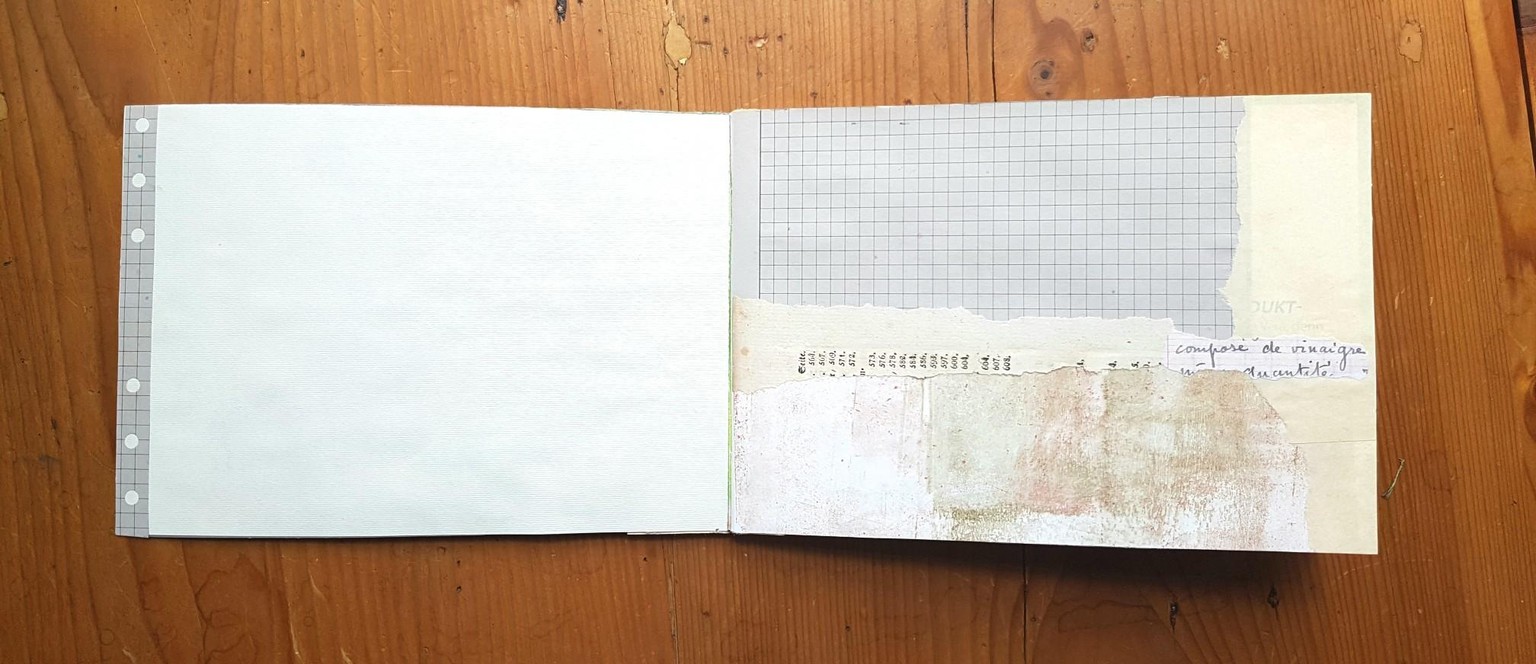 DUKT-
composé de vinaigre
quantité.
Seite.
564.
567.
569.
571.
572.
573.
576.
578.
582.
584.
586.
593.
597.
600.
604.
604.
607.
608.